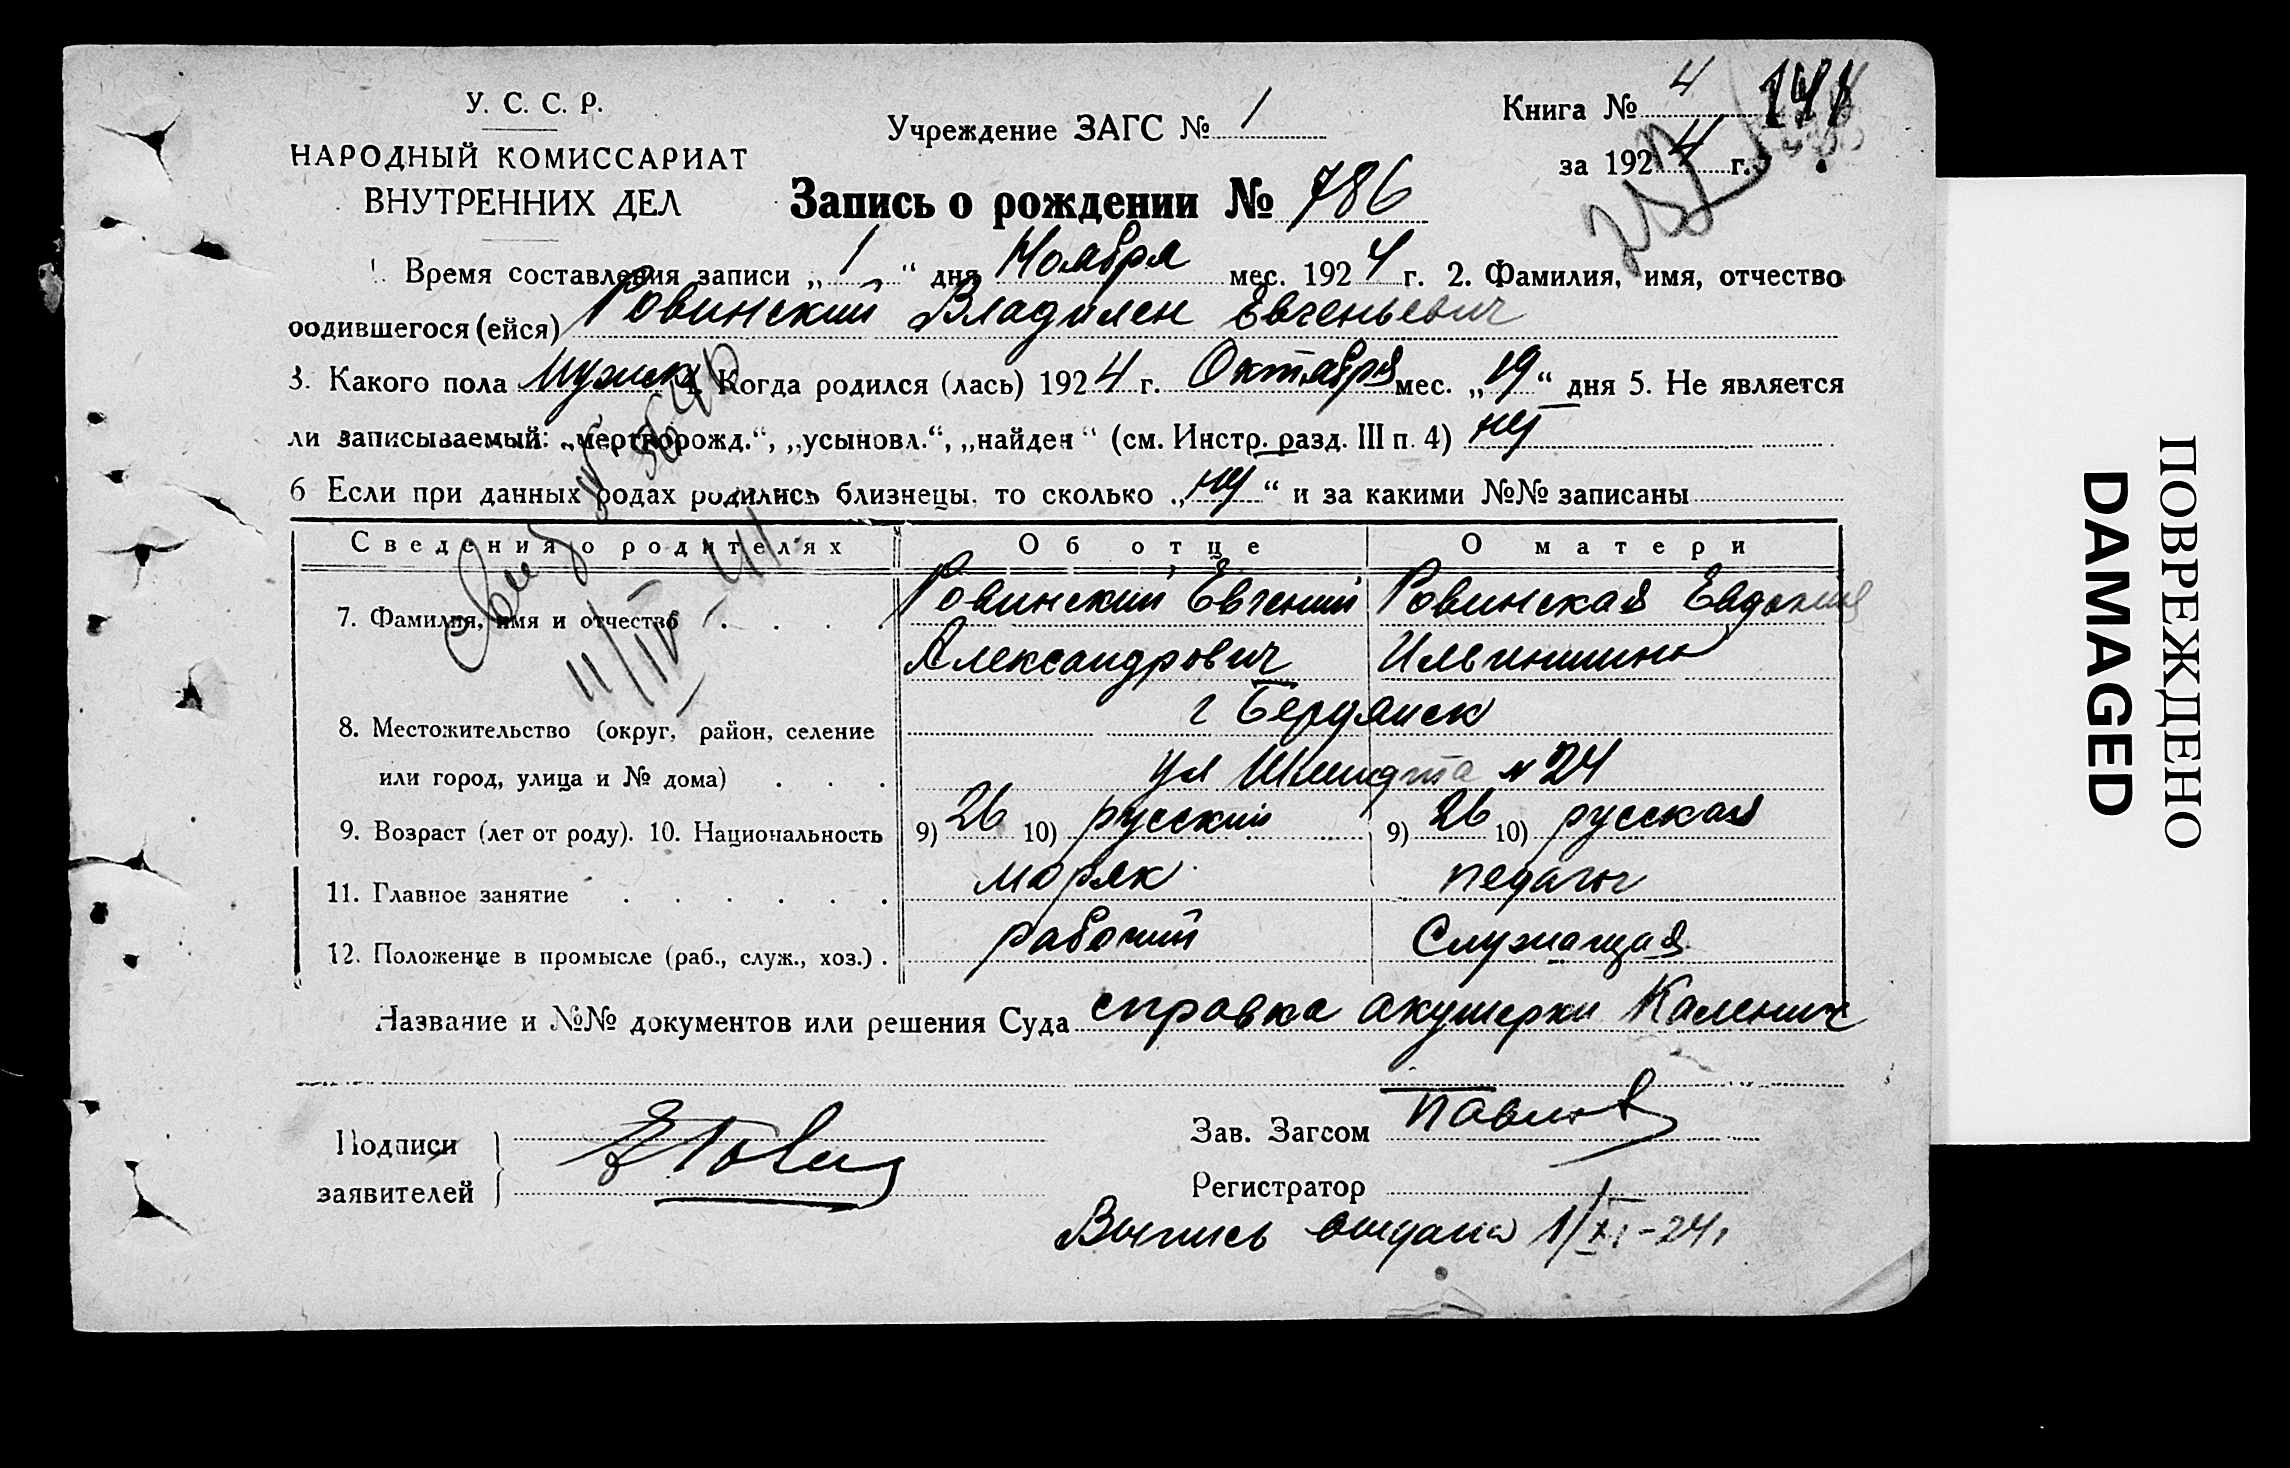 У. С. С. Р.
НАРОДНЫЙ КОМИССАРИАТ
ВНУТРЕННИХ ДЕЛ
Учреждение ЗАГС № 1
Книга № 4
за 1924 г.
Запись о рождении № 786
1. Время составления записи „ 1 “ дня Ноября мес. 1924 г. 2. Фамилия, имя, отчество
родившегося (ейся) Ровинский Владилен Евгеньевич
3. Какого пола мужск 4. Когда родился (лась) 1924 г. Октября мес. „19“ дня 5. Не является
ли записываемый: „мертворожд.“, „усыновл.“, „найден“ (см. Инстр. разд. III п. 4) нет
6 Если при данных родах родились близнецы, то сколько „нет“ и за какими №№ записаны
Сведения о родителях Об отце О матери
7. Фамилия, имя и отчество . . . . Ровинский Евгений Ровинская Евдокия
Александрович Ильинишна
8. Местожительство (округ, район, селение г Бердянск
или город, улица и № дома) . . . ул Шмидта № 24
9. Возраст (лет от роду). 10. Национальность 9) 26 10) русский 9) 26 10) русская
11. Главное занятие . . . . . . моряк педагог
12. Положение в промысле (раб., служ., хоз.) . рабочий Служащая
Название и №№ документов или решения Суда справка акушерки Каленич
Подписи
заявителей
Зав. Загсом Павлов
Регистратор
Выпись выдана 1/XI-24г
11/IV 41
ПОВРЕЖДЕНО
DAMAGED